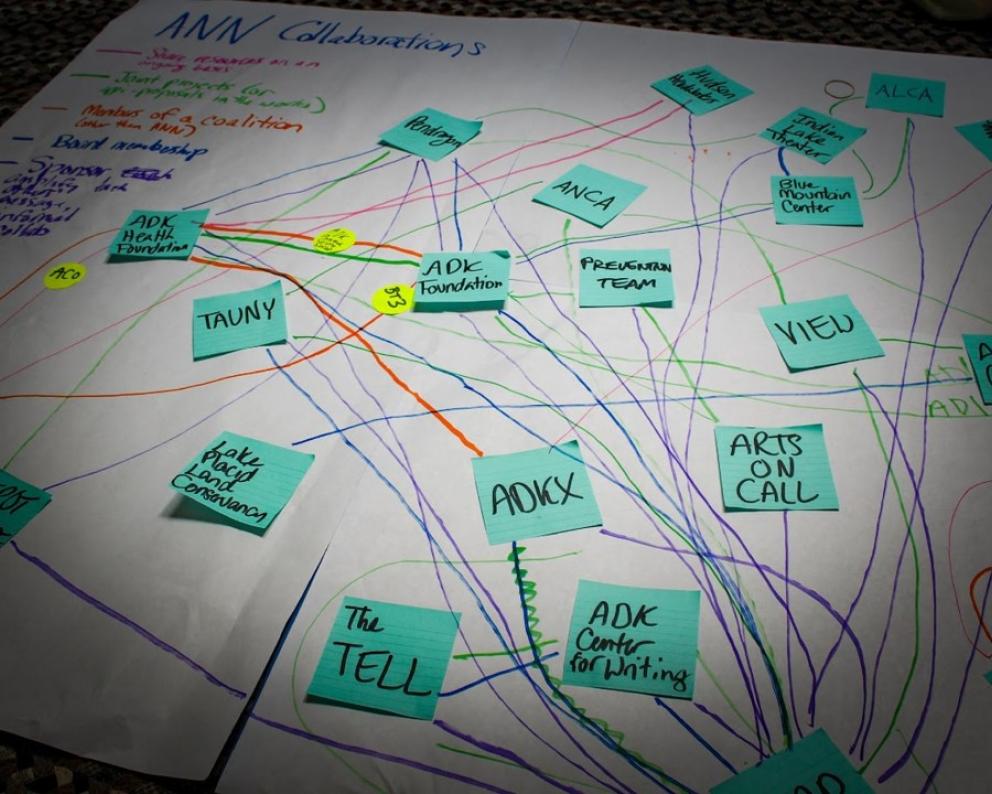 ANN Collaborations
Share resources on an
ongoing basis
Joint projects (or
in the works)
Members of a coalition
(other than ANN)
Board membership
Sponsor
Pending
Hudson
Headwaters
ALCA
Indian
Lake
Theater
Blue
Mountain
Center
ANCA
ADK
Health
Foundation
ACO
BT3
ADK
Foundation
PREVENTION
TEAM
TAUNY
VIEW
Lake
Placid
Land
Conservancy
ADKX
ARTS
ON
CALL
The
TELL
ADK
Center
for Writing